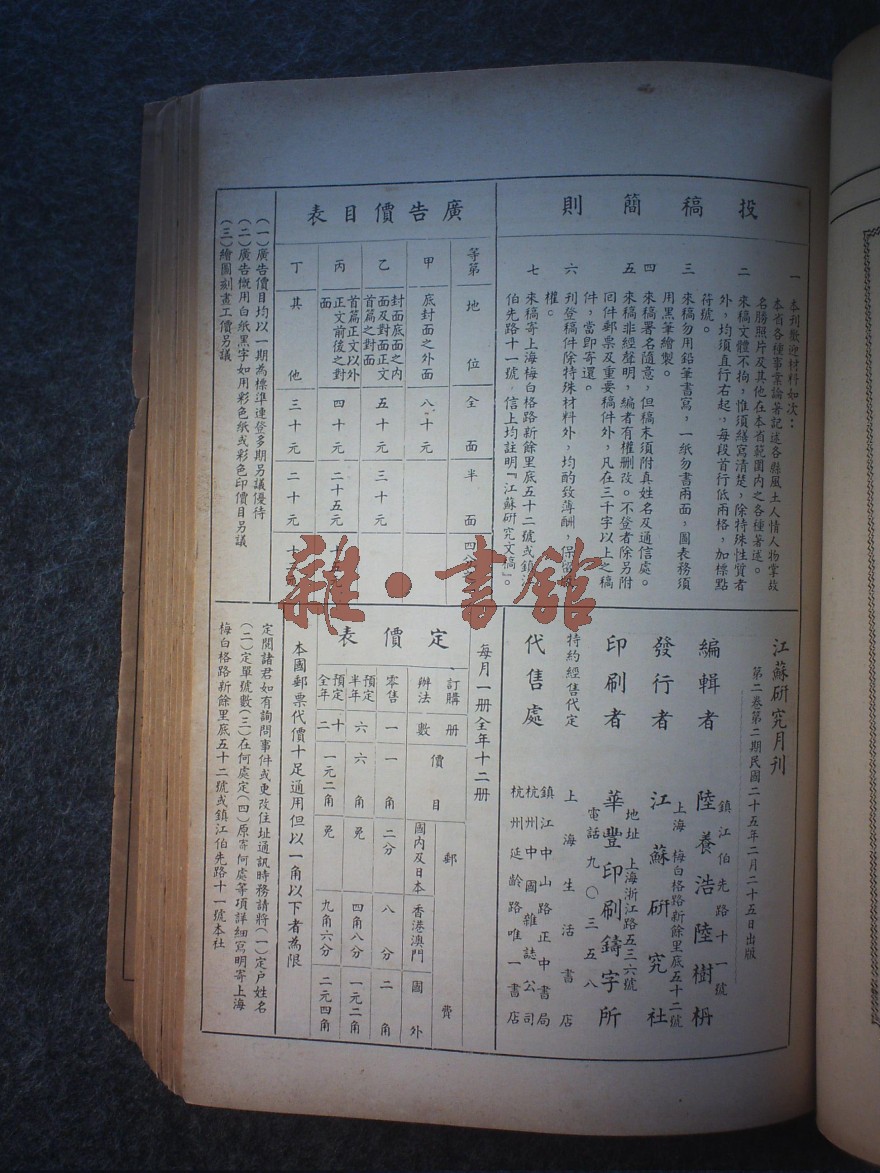 投稿簡則
一 本刊歡迎材料如次：
本省各種事業論著記述各縣風土人情人物掌故
名勝照片及其他在本省範圍內之各種著述。
二 來稿文體不拘，惟須繕寫清楚，除特殊性質者
外，均須直行右起，每段首行低兩格，加標點
符號。
三 來稿勿用鉛筆書寫，一紙勿書兩面，圖表務須
用黑筆繪製。
四 來稿署名隨意，但稿末須附真姓名及通信處。
五 來稿非經聲明，編者有權刪改。不登者除另附
回件郵票及重要稿件外，凡在三千字以上之稿
件，當卽寄還。
六 刊登稿件除特殊材料外，均酌致薄酬，保留
權。
七 來稿寄上海梅白格路新餘里底五十二號或鎮江
伯先路十一號，信上均註明「江蘇研究文稿」。
廣告價目表
等第 地位 全面 半面 四分
甲 底封面之外面 八十元
乙 封面底面之內面及對面正文首篇之對面 五十元 三十元
丙 首篇正文以外正文前後之對面 四十元 二十五元
丁 其他 三十元 二十元
（一）廣告價目均以一期為標準連登多期另議優待
（二）廣告概用白紙黑字如用彩色紙或彩色印價目另議
（三）繪圖刻畫工價另議
江蘇研究月刊
第二卷第二期民國二十五年二月二十五日出版
編輯者 陸養浩 陸樹枬
鎮江伯先路十一號
發行者 江蘇研究社
上海梅白格路新餘里底五十二號
印刷者 華豐印刷鑄字所
地址 上海浙江路五三六號
電話 九〇三五八
特約經售代定 上海生活書店
代售處 鎮江中山路正中書局
杭州中國雜誌公司
杭州延齡路唯一書店
定價表
每月一册全年十二册
訂購辦法 册數 價目 郵費 國內及日本 香港澳門 國外
零售 一 一角 二分 八分 二角
預定半年 六 六角 免 四角八分 一元二角
預定全年 十二 一元二角 免 九角六分 二元四角
本國郵票代價十足通用但以一角以下者為限
定閱諸君如有詢問事件或更改住址通訊時務請將（一）定戶姓名
（二）定單號數（三）在何處定（四）原寄何處等項詳細寫明寄上海
梅白格路新餘里底五十二號或鎮江伯先路十一號本社
雜·書館